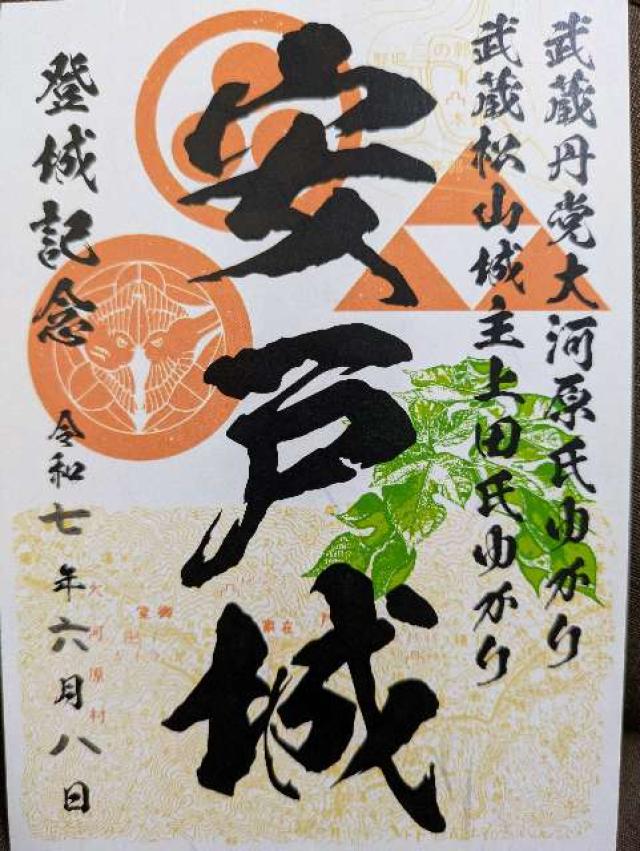 武蔵丹党大河原氏ゆかり
武蔵松山城主上田氏ゆかり
安戸城
登城記念
令和七年六月八日
大河原村